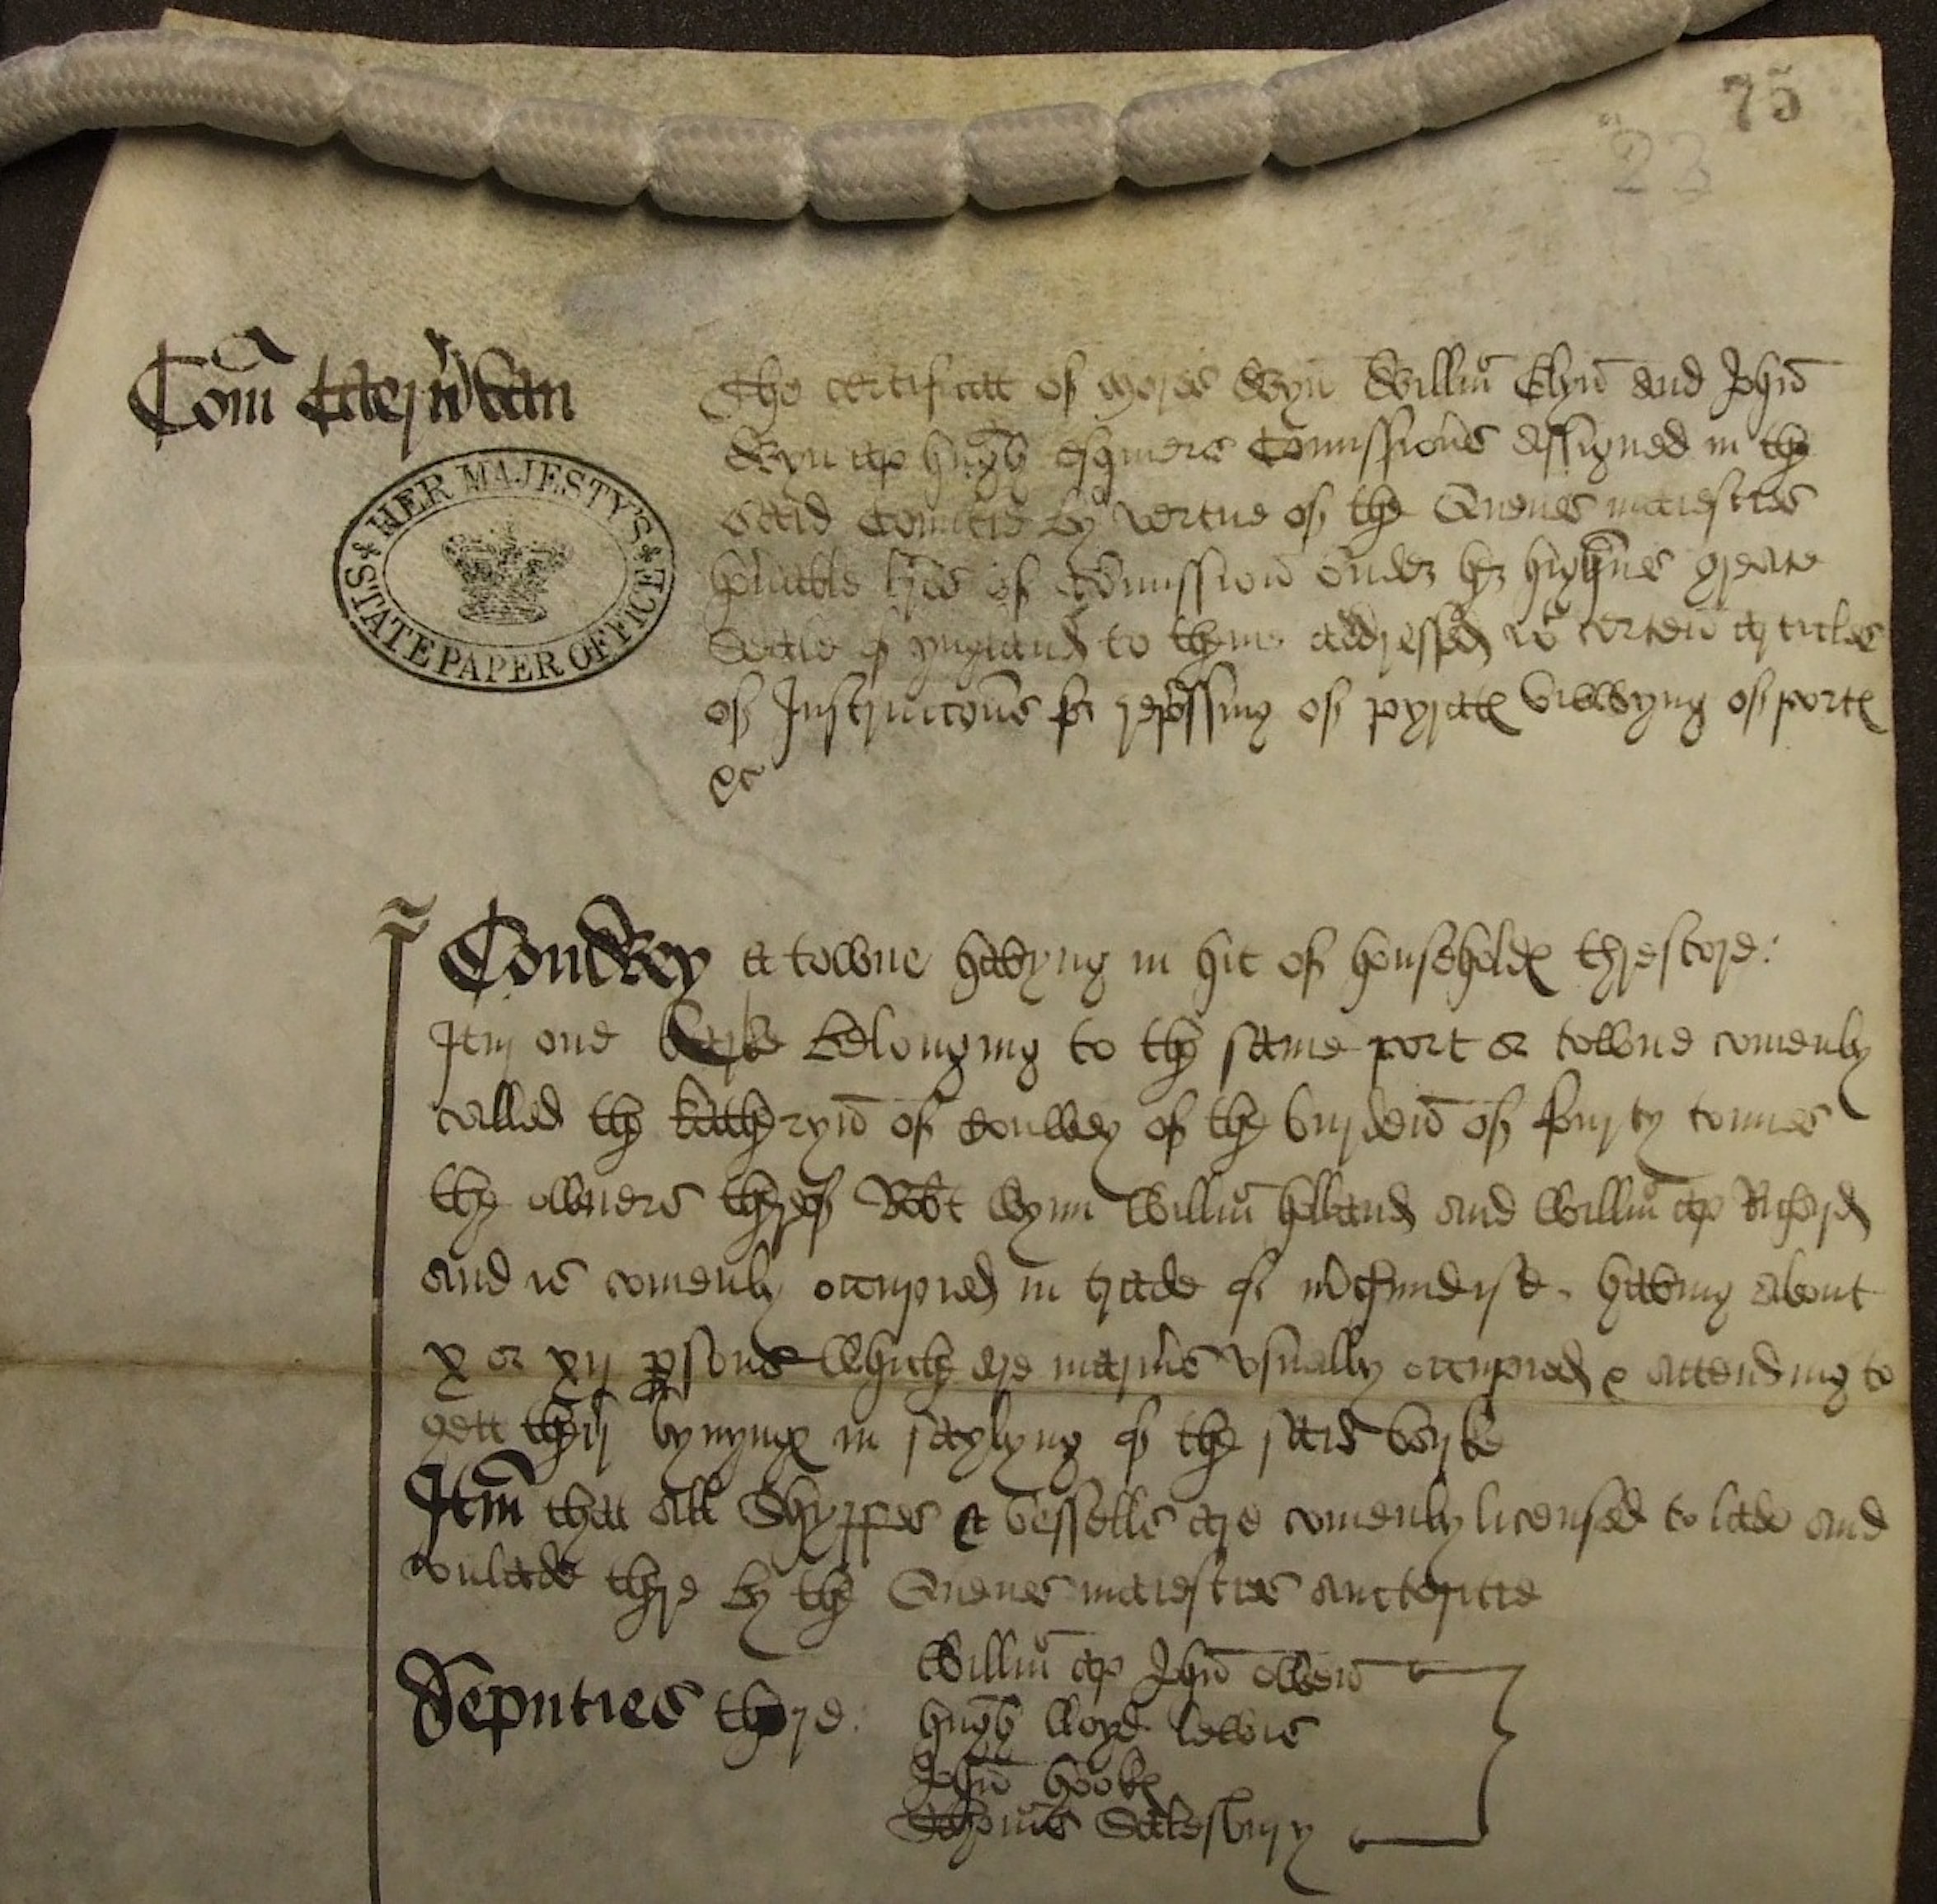 75
23
Com Caernarvan
HER MAJESTY'S STATE PAPER OFFICE
The certificatt of Mores Wyn Willm Elyn and John
Wyn ap hugh esquiers Comissions assigned in the
said Comitie by vertue of the Quenes maiesties
honable lres of Comission under her highnes greate
Seale of yngland to theme addressed wt certen articles
of Instruccons for repssing of pyrates viewyng of portes
&c
Conwey a towne having in hit of householdes threscore:
Itm one barke belonging to the same port or towne comenly
called the Katheryn of Conwey of the burden of fourty tonnes
the owners therof Robt Wynn Willm holland and Willm ap Richard
and is comenly occupied in trade of mchundyse having about
x or xij psons which are marins usually occupied & attending to
gett their lyvynges in saylyng of the said barke
Itm that all Shyppes & vesselles are comenly licensed to lade and
unlade there by the Quenes maiesties aucthoritie
Deputies there: Willm ap John Owen
hugh lloyd lewis
John hookes
Thoms Salesbury